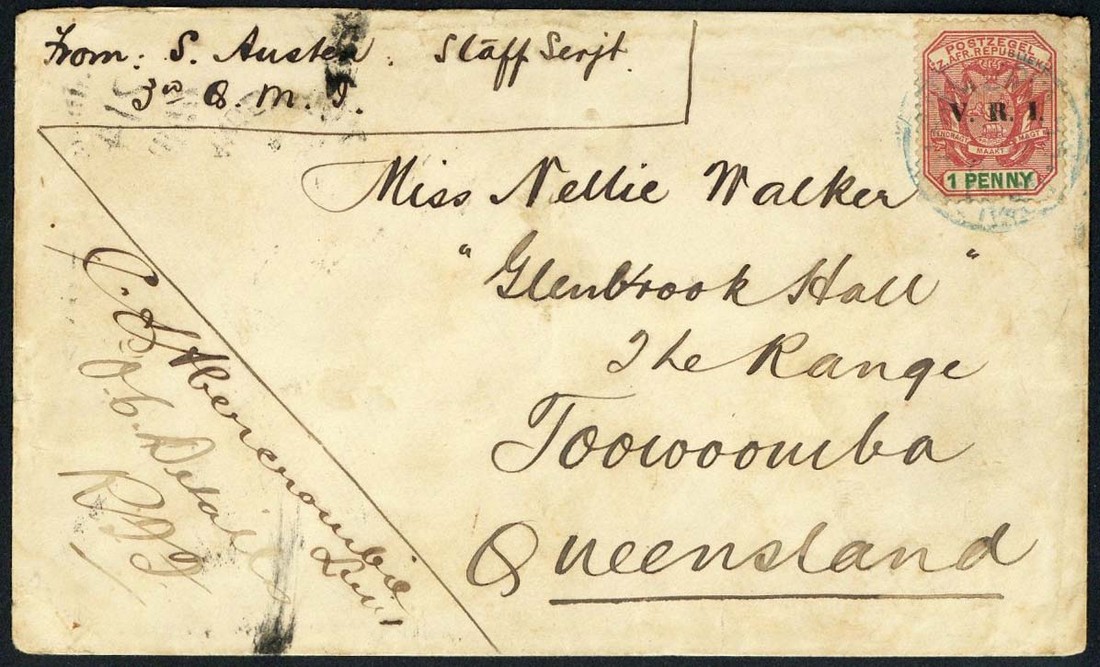 From: S. Austen. Staff Serjt.
3rd Q. M. I.
POSTZEGEL
Z. AFR. REPUBLIEK
V. R. I.
EENDRAGT MAAKT MAGT
1 PENNY
Miss Nellie Walker
"Glenbrook Hall"
The Range
Toowooomba
Queensland
C. Abercrombie
Lieut
O.C. Details